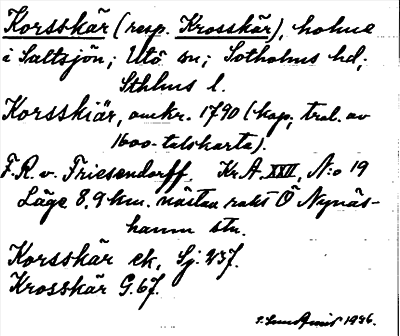 Korsskär (resp. Krosskär), holme
i Saltsjön; Utö sn; Sotholms hd;
Sthlms l.
Korsskiär, omkr. 1790 (kop. trol. av
1600-talskarta).
F. R. v. Friesendorff, Kr A. XXII, N:o 19
Läge 8,9 km. nästan rakt Ö Nynäs-
hamn stn.
Korsskär ek. Sj. 237.
Krosskär G. 67.
1936.